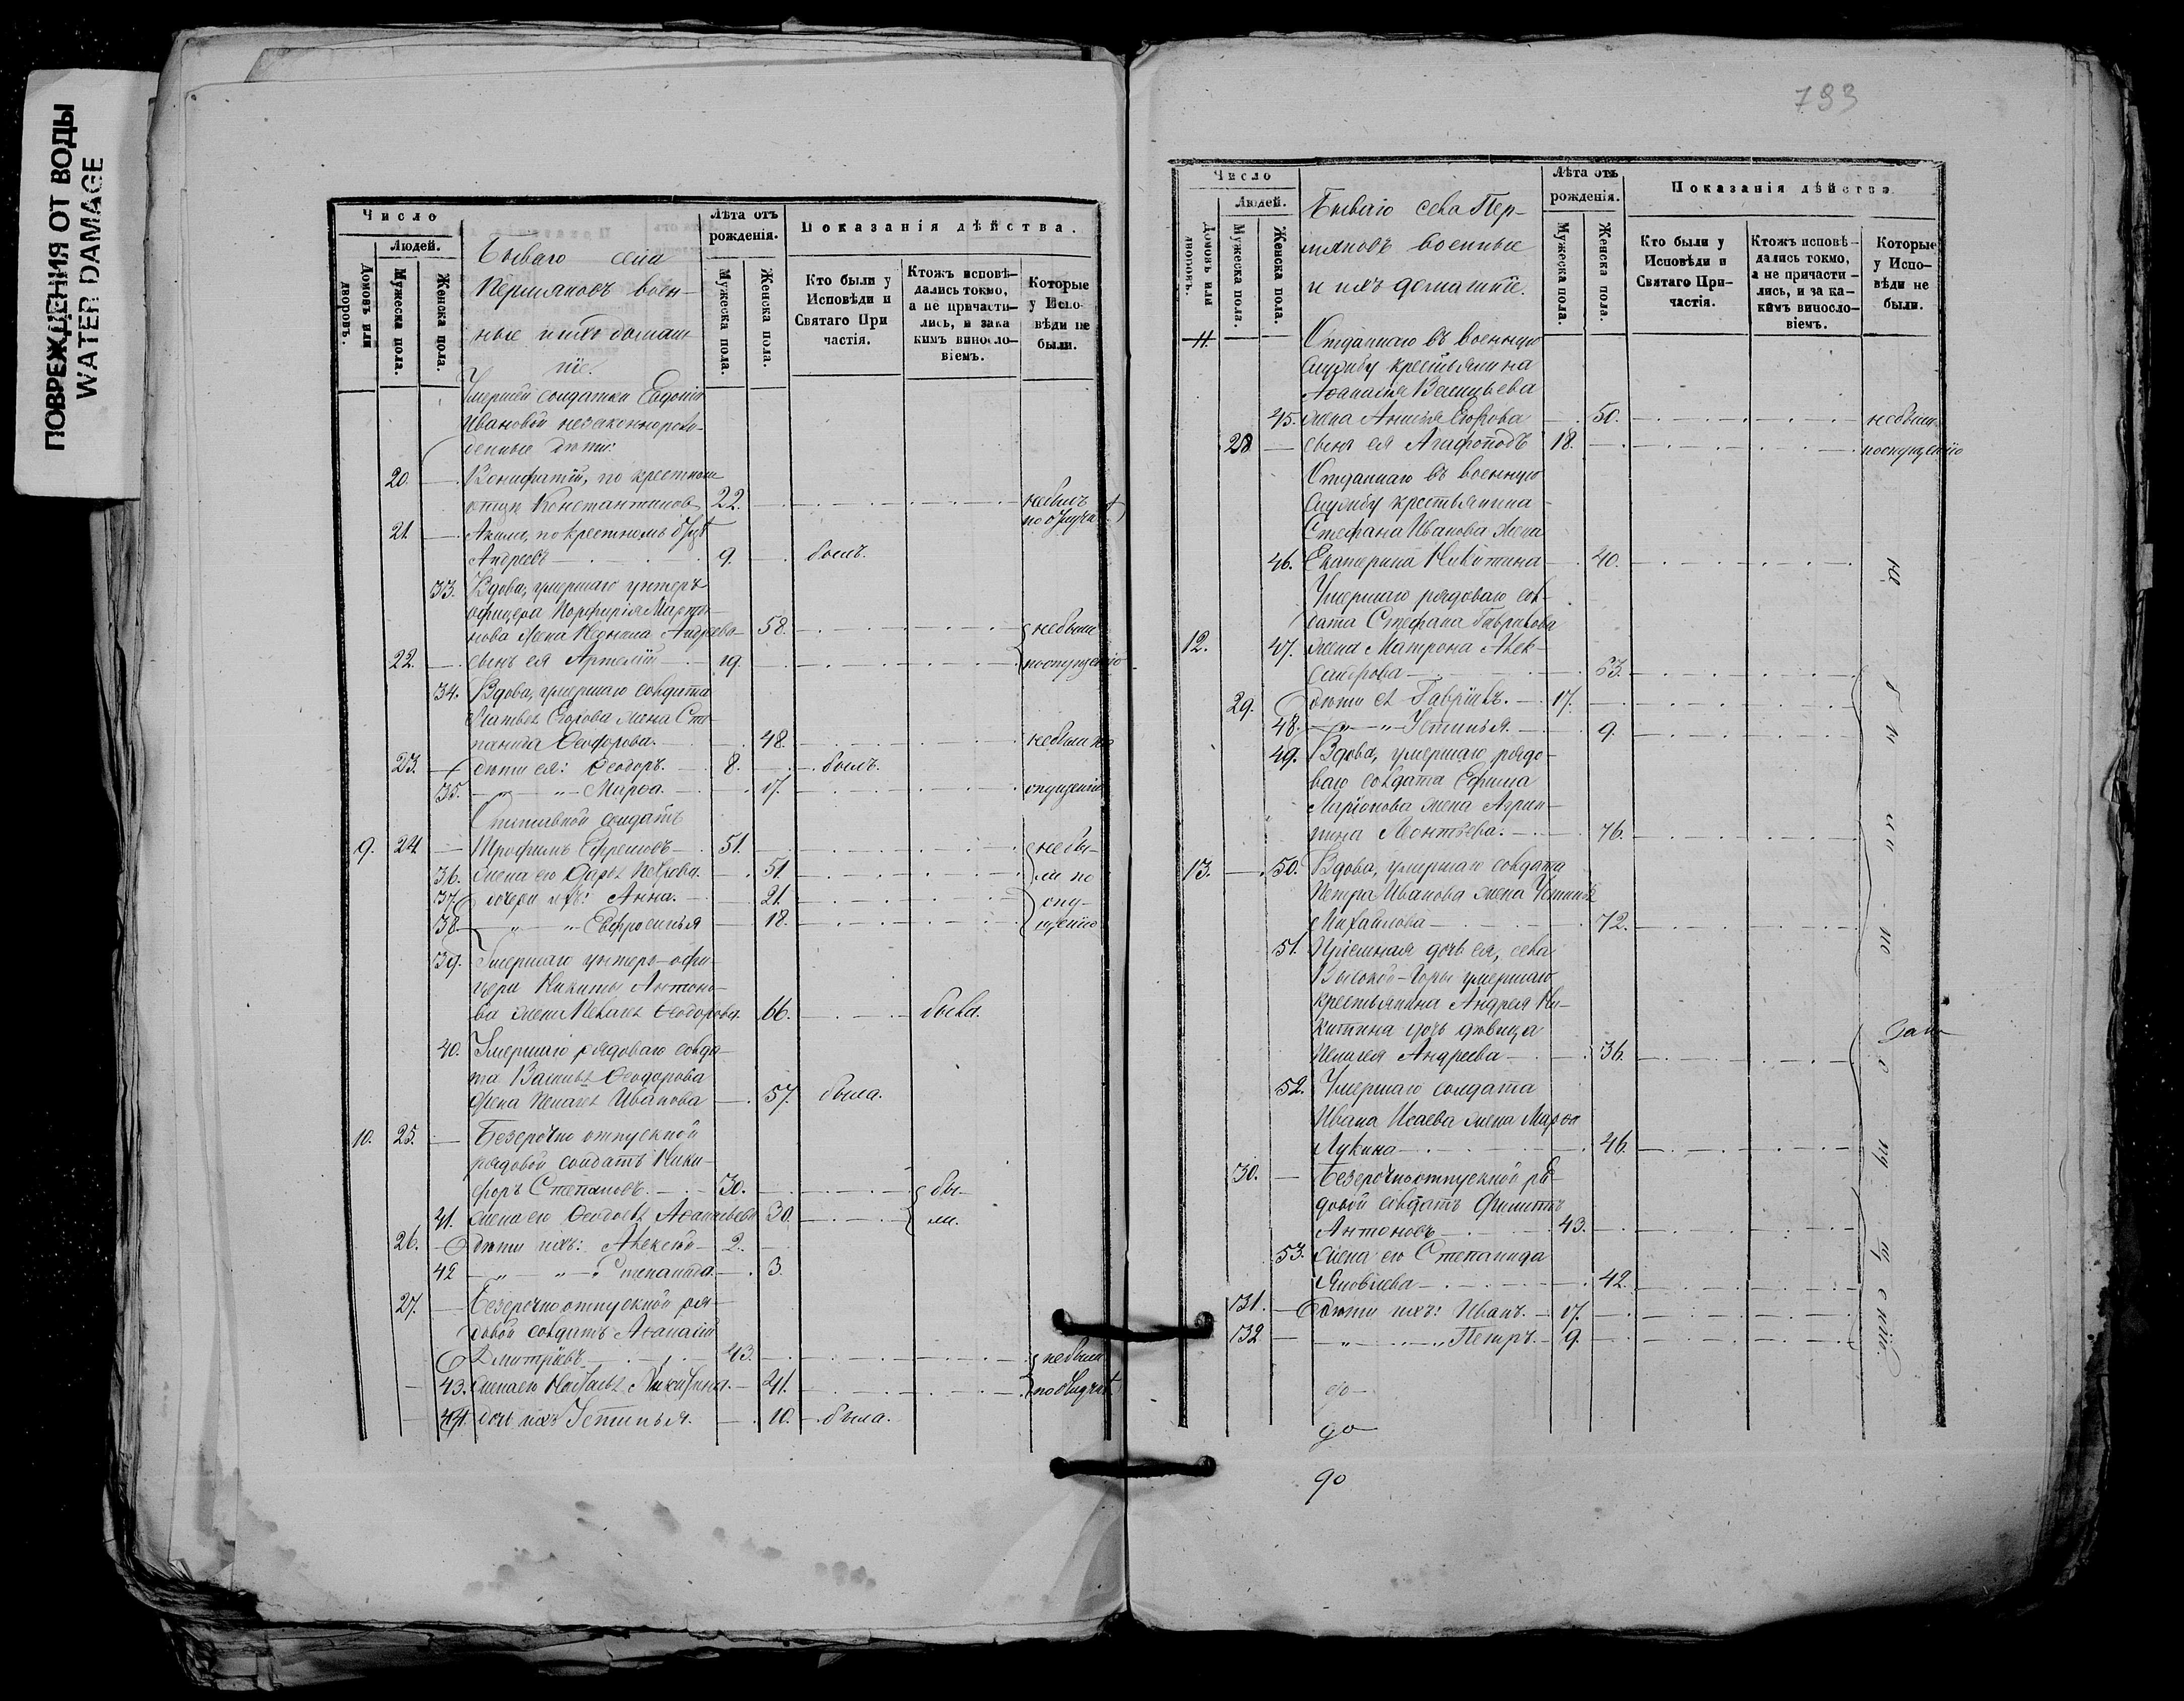 ПОВРЕЖДЕНИЯ ОТ ВОДЫ
WATER DAMAGE
Число
Людей.
Домовъ или дворовъ.
Мужеска пола.
Женска пола.
Бывшаго села
Пермяковъ воен-
ные и ихъ домаш-
ніе.
Лѣта отъ рожденія.
Мужеска пола.
Женска пола.
Показанія дѣйства.
Кто были у Исповѣди и Святаго При частія.
Ктожъ исповѣ- дались токмо, а не причасти- лись, и зака кимъ виносло- віемъ.
Которые у Испо- вѣди не были.
Умершей солдатки Евдокіи
Ивановой незаконнорож-
денные дѣти:
20. Вонифатій, по крестному
отцу Константиновъ 22. не былъ
по опущ.
21. Акимъ, по крестному отцѣ
Андреевъ 9. былъ.
33. Вдова, умершаго унтеръ-
офицера Порфирія Марты-
нова жена Неонила Андреева 58. не были
22. сынъ ея Артемій 19. по опущенію
34. Вдова, умершаго солдата
Матвея Егорова жена Сте-
панида Ѳеодорова. 48. не были по
23. дѣти ея: Ѳеодоръ. 8. былъ.
35. " " Марѳа. 17. опущенію
Отставной солдатъ
9. 24. Трофимъ Ефремовъ 51. не бы-
36. жена его Дарья Петрова. 51. ли по
37. дочери ихъ: Анна. 21. опу-
38. " " Евфросинья 18. щенію
39. Умершаго унтеръ-офи-
цера Никиты Антоно-
ва жена Пелагея Ѳеодорова. 66. была.
40. Умершаго рядоваго солда-
та Василья Ѳеодорова
жена Пелагея Иванова 57. была.
10. 25. Безсрочно отпускной
рядовой солдатъ Ники-
форъ Степановъ. 30. бы-
41. жена его Ѳедосья Аѳанасьева 30. ли.
26. дѣти ихъ: Алексѣй 2.
42 " " Степанида. 3.
27. Безсрочноотпускной ря-
довой солдатъ Аѳанасій
Дмитріевъ 43. не были
43. жена его Наталья Никитина. 41. по опущ.
44. дочь ихъ Устинья. 10. была.
793
Число
Людей.
Домовъ или дворовъ.
Мужеска пола.
Женска пола.
Бывшаго села Пер-
мяковъ военные
и ихъ домашніе.
Лѣта отъ рожденія.
Мужеска пола.
Женска пола.
Показанія дѣйства
Кто были у Исповѣди и Святаго При- частія.
Ктожъ исповѣ- дались токмо, а не причасти- лись, и за ка- кимъ виносло- віемъ.
Которые у Испо- вѣди не были.
11. Отданнаго въ военную
службу крестьянина
Аѳанасія Васильева
45. жена Анисья Егорова 50. не были
28 сынъ ея Агафоподъ 18. по опущенію
Отданнаго въ военную
службу крестьянина
Стефана Иванова жена
46. Екатерина Никитина 40.
Умершаго рядоваго сол-
дата Стефана Гаврилова
12. 47. жена Матрона Алек-
сандрова 53.
29. дѣти ея Гавріилъ. 17.
48. " " Устинья. 9.
49. Вдова, умершаго рядо-
ваго солдата Ефима
Ларіонова жена Агрип-
пина Леонтьева. 76.
13. 50. Вдова, умершаго солдата
Петра Иванова жена Устинья
Михайлова 72.
51. Пріемная дочь ея, села
Высокой-Горы умершаго
крестьянина Андрея Ни-
китина дочь дѣвица
Пелагея Андреева 36.
52. Умершаго солдата
Ивана Исаева жена Марѳа
Лукина 46.
30. Безсрочноотпускной ря-
довой солдатъ Филиппъ
Антоновъ 43.
53. жена его Степанида
Яковлева 42.
31. дѣти ихъ: Иванъ. 17.
32 " " Петръ. 9.
не были по опущенію.